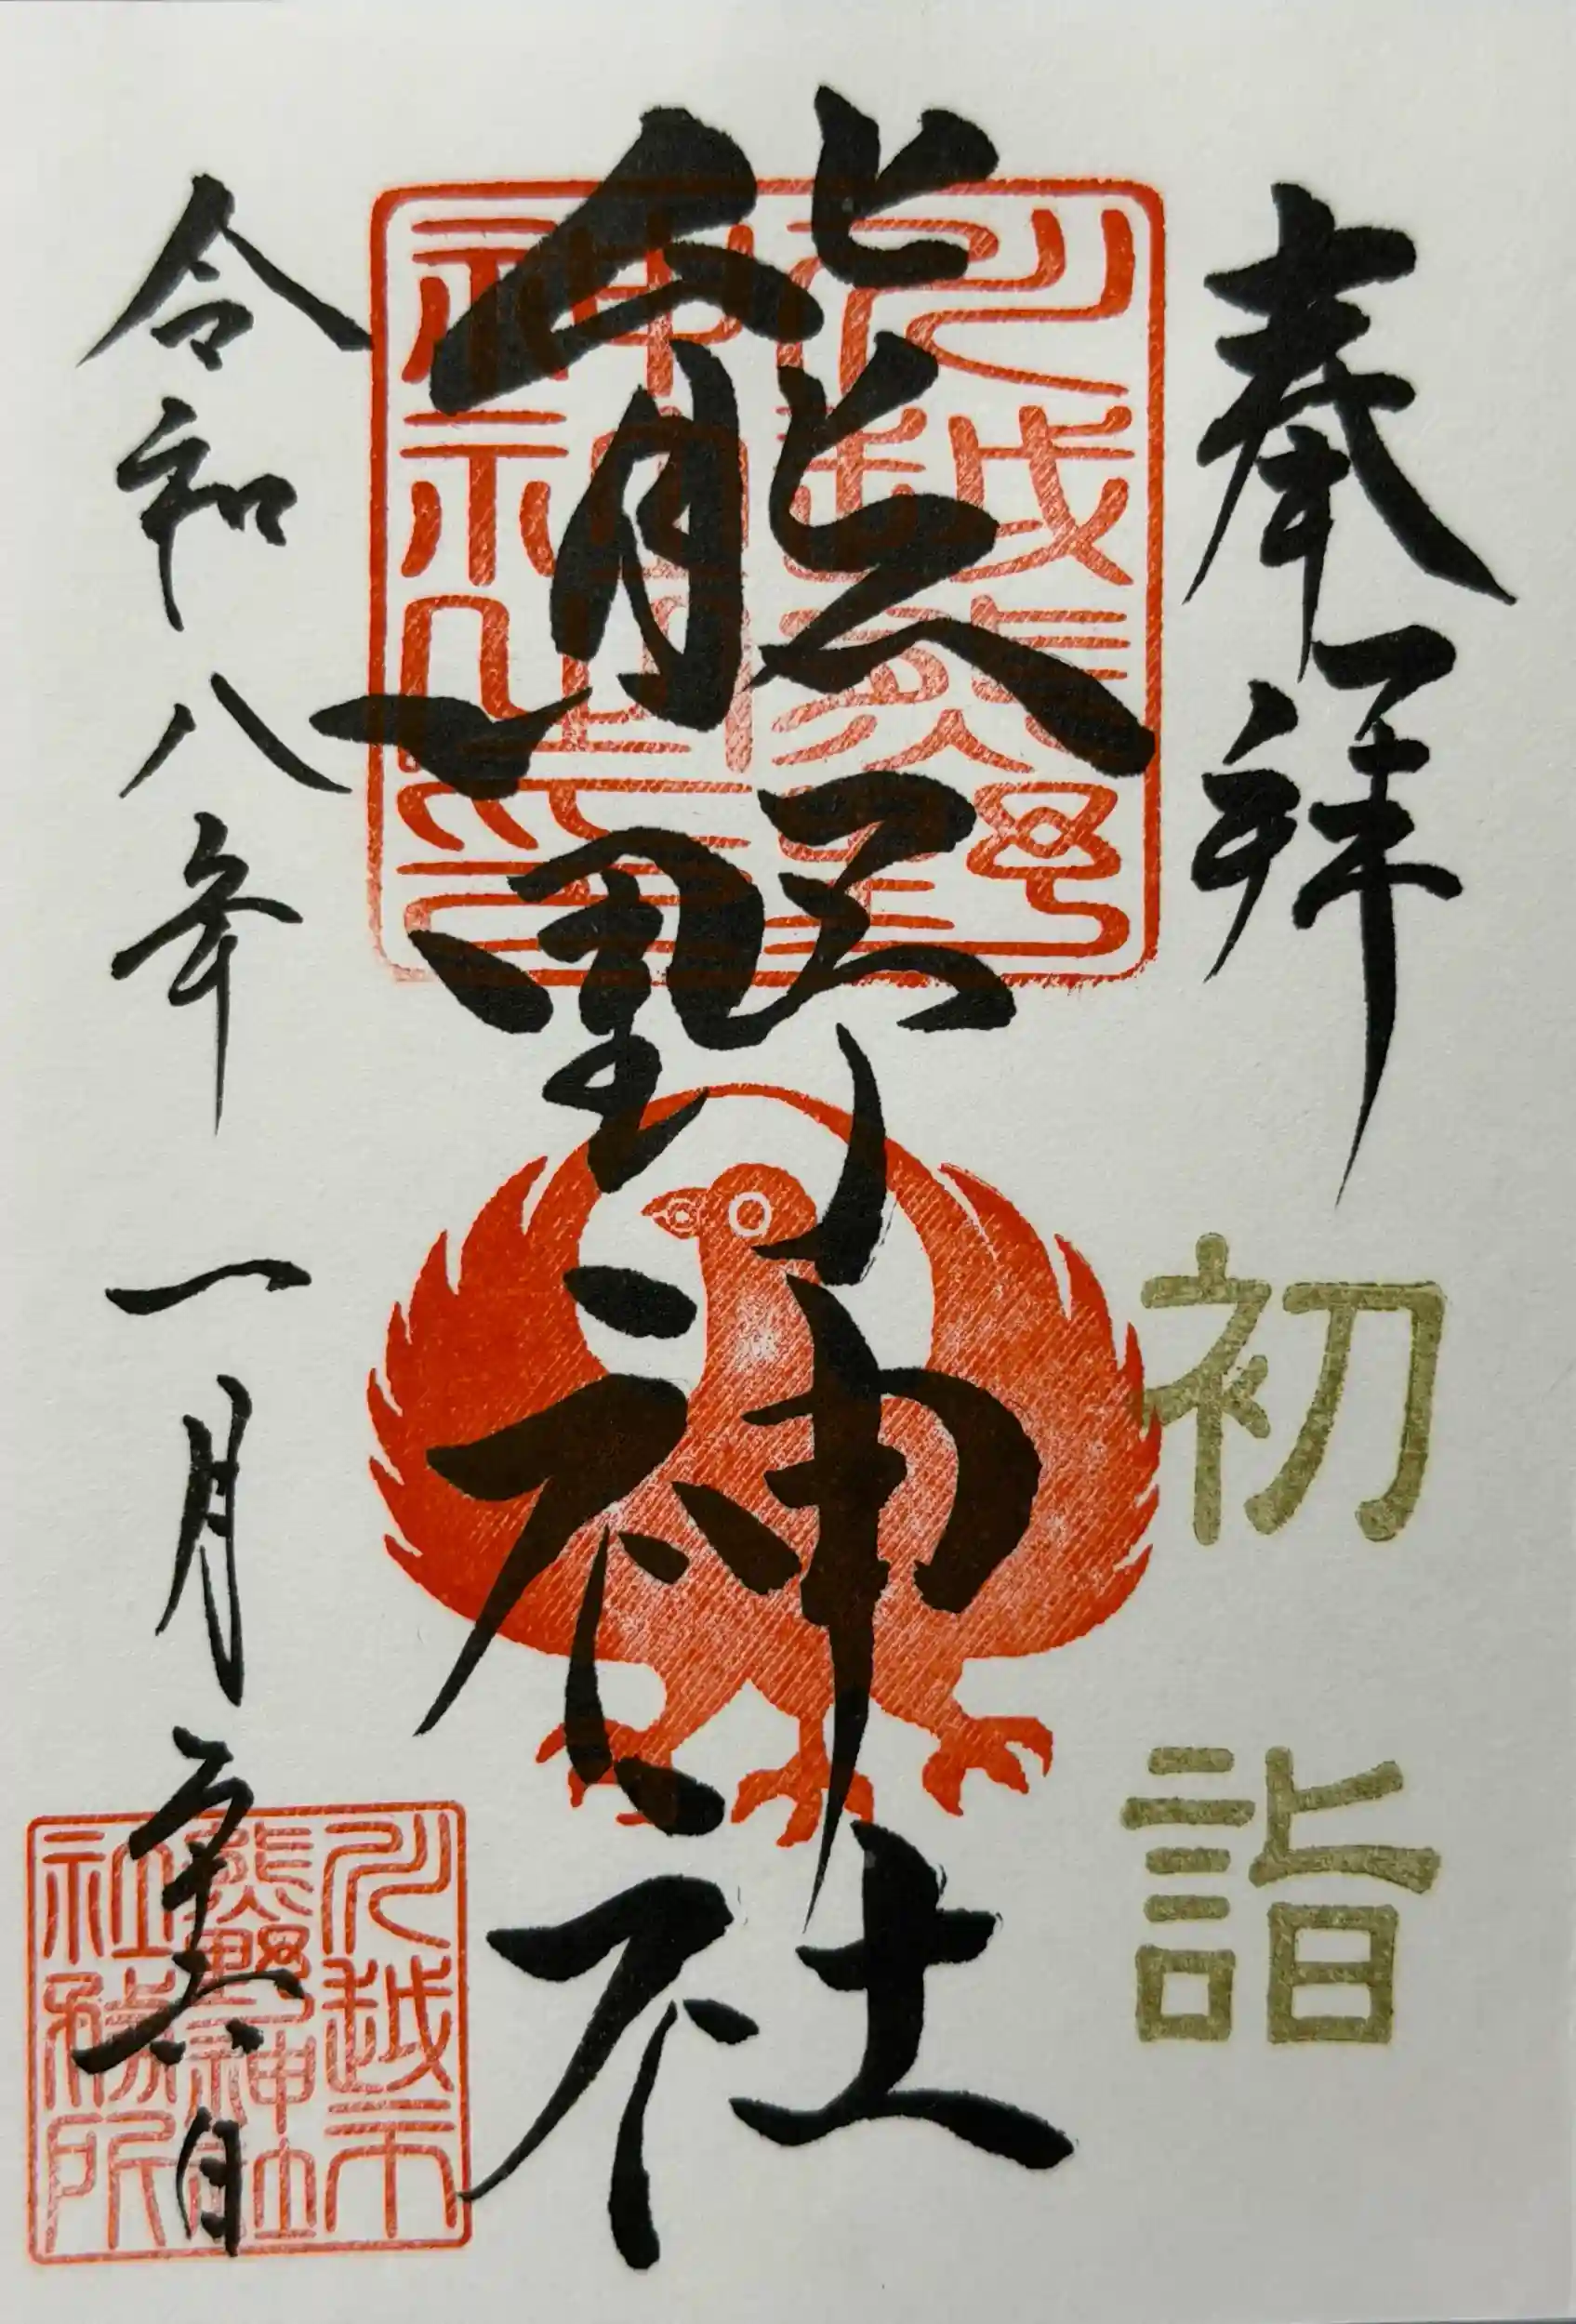 奉拝
初詣
熊野神社
川越熊野
神社之印
令和八年一月二十日
川越市
熊野神社
社務所